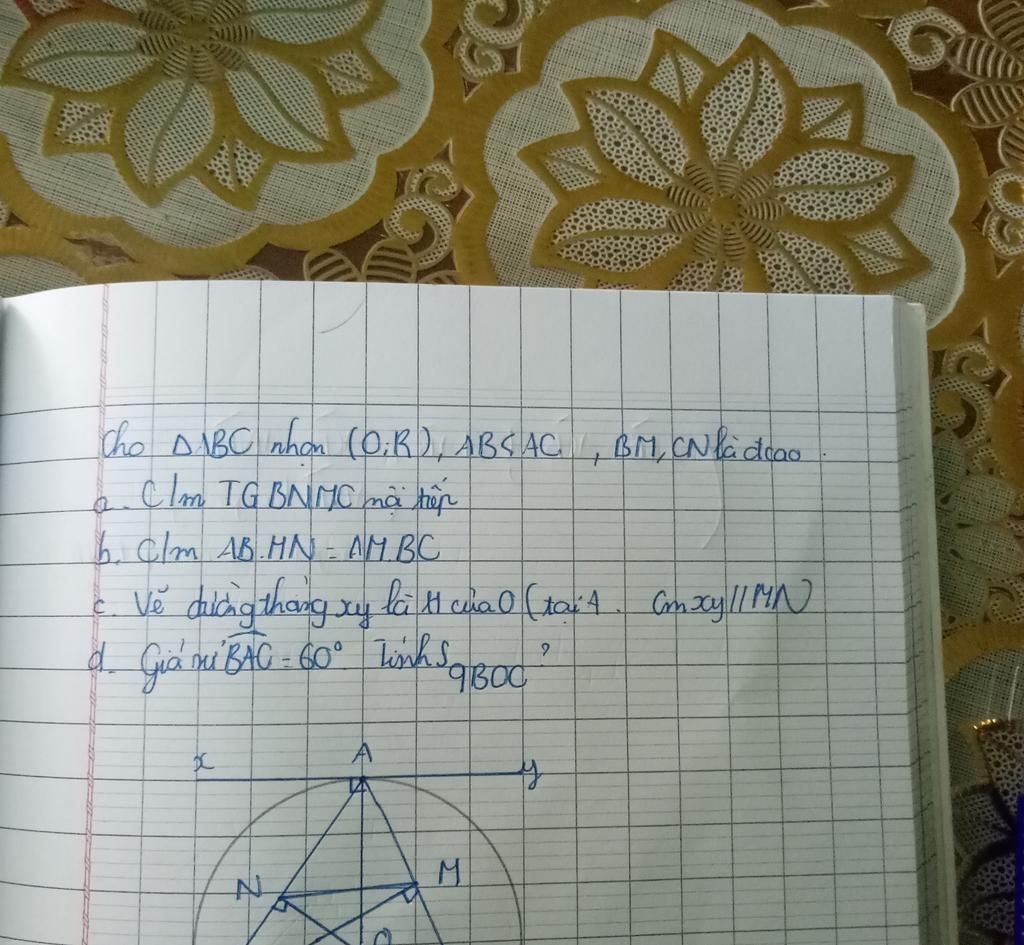 Cho ΔABC nhọn (O;R), AB<AC, BM, CN là đcao.
a. C/m TG BNMC nội tiếp
b. C/m AB.MN = AM.BC
c. Vẽ đường thẳng xy là tt của O (tại A. Cm xy//MN)
d. Giả sử BAC = 60° Tính S qBOC ?
x A y
N M
O